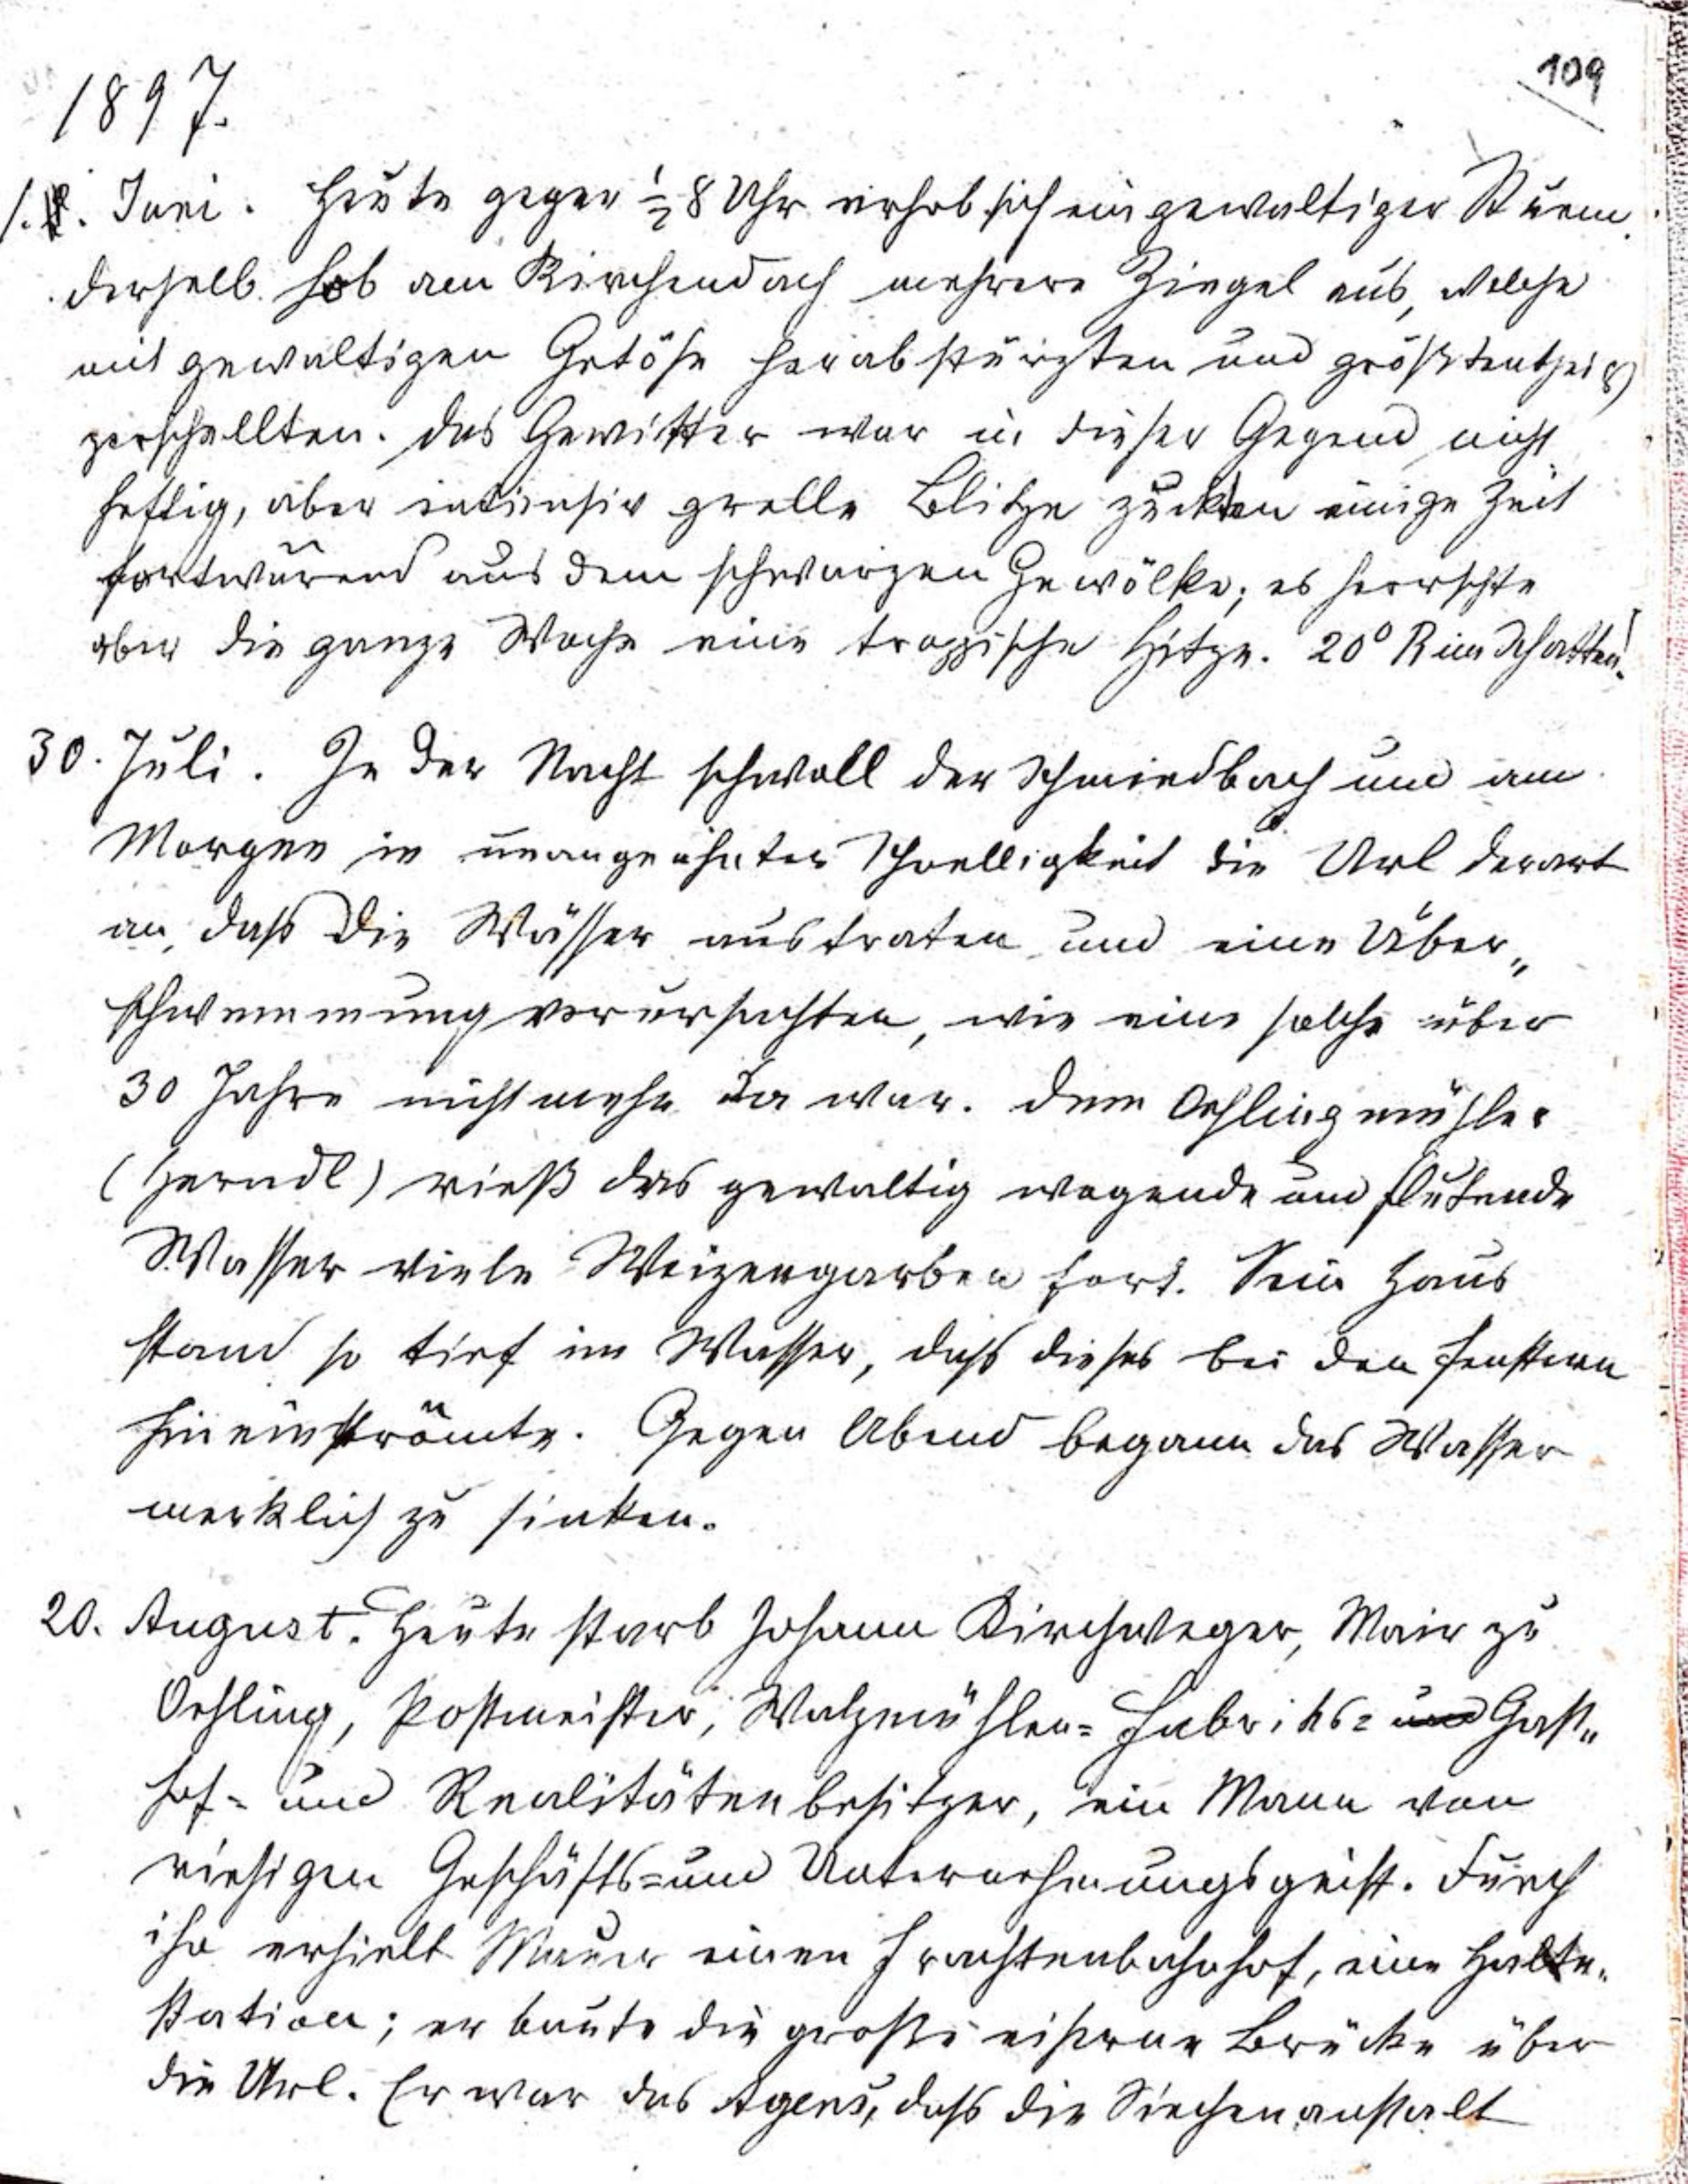 109
1897.
1. Juni. Heute gegen ½ 8 Uhr erhob sich ein gewaltiger Sturm.
derselb. hob am Kirchendach mehrere Ziegel aus, welche
mit gewaltigen Getöse herabstürzten und größtentheils
zerschellten. Das Gewitter war in dieser Gegend nicht
heftig, aber intensiv grelle Blitze zuckten einige Zeit
fortwärend aus dem schwarzen Gewölke; es herrschte
aber die ganze Woche eine tropische Hitze. 20° R im Schatten!
30. Juli. In der Nacht schwoll der Schmiedbach und am
Morgen in ungeahnter Schnelligkeit die Url derart
an, daß die Wässer austraten und eine Über„
schwemmung verursachten, wie eine solche über
30 Jahre nicht mehr da war. Dem Oehlingmühler
(Herndl) rieß das gewaltig wogende und flutende
Wasser viele Weizengarben fort. Sein Haus
stand so tief im Wasser, daß dieses bei den Fenstern
hineinströmte. Gegen Abend begann das Wasser
merklich zu sinken.
20. August. Heute starb Johann Kirchweger, Mair zu
Oehling, Postmeister, Walzmühlen= Fabriks= und Gast„
hof= und Realitätenbesitzer, ein Mann von
riesigen Geschäfts= und Unternehmungsgeist. Durch
ihn erhielt Mauer einen Frachtenbahnhof, eine Halte„
station; er baute die große eiserne Brücke über
die Url. Er war das Agens, daß die Siechenanstalt